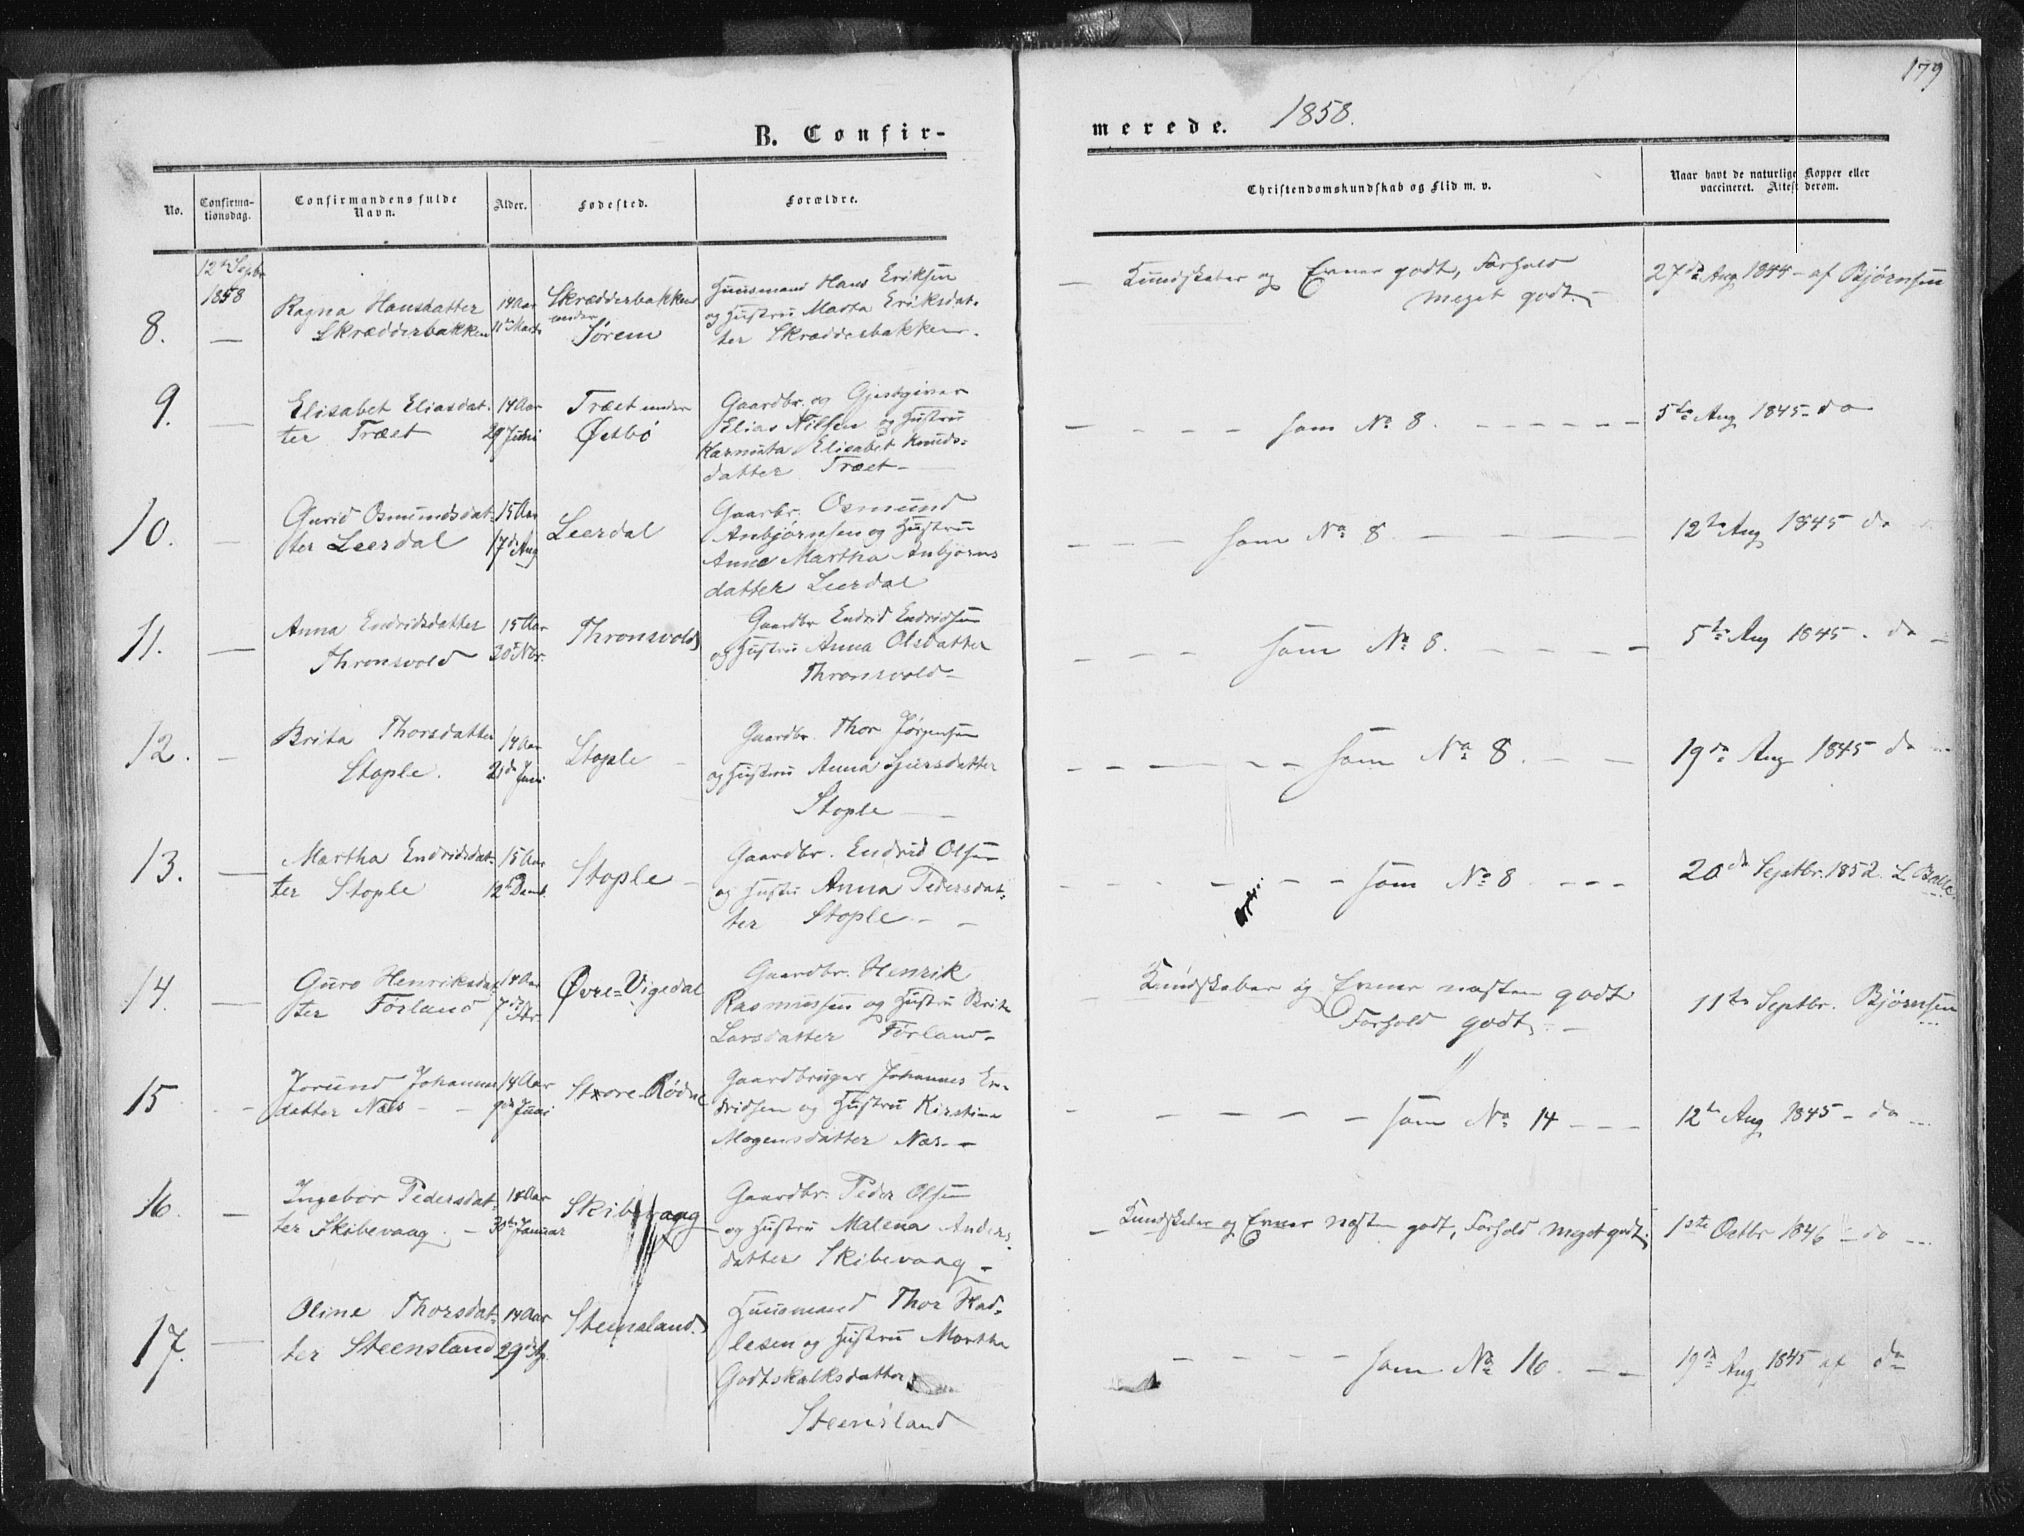 179
B. Confir-
merede. 1858.
No.
Confirma-
tionsdag.
Confirmandens fulde
Navn.
Alder.
Fødested.
Forældre.
Christendomskundskab og Flid m. v.
Naar havt de naturlige Kopper eller
vaccineret. Attest derom.
12te Septbr
1858
8. —
Ragna Hansdatter
Skrædderbakken
14 Aar
11te Marts
Skrædderbakken
under
Sørem
Huusmand Hans Eriksen
og Hustru Marta Eriksdat-
ter Skrædderbakken.
— Kundskaber og Evner godt, Forhold
meget godt. —
27de Aug 1844 - af Bjørnsen
9. —
Elisabet Eliasdat-
ter Træet
14 Aar
29 Juni
Træet under
Østbö
Gaardbr. og Gjestgiver
Elias Nilsen og Hustru
Elisabet Knuds-
datter Træet —
— — — — som No 8. — — — — — —
5te Aug 1845 - do
10. —
Gurid Osmundsdat-
ter Leerdal
15 Aar
17de Aug
Leerdal
Gaarbr. Osmund
Anbjørnsen og Hustru
Anne Martha Anbjørns
datter Leerdal
— — — som No 8. — — — — —
12te Aug 1845 do
11. —
Anna Endridsdatter
Thronsvold
15 Aar
30te Nbr.
Thronsvold
Gaardbr Endrid Endridsen
og Hustru Anna Olsdatter
Thronsvold —
— — — som No 8. — — — — —
5te Aug 1845. do —
12. —
Brita Thorsdatter
Stople.
14 Aar
Juni
Stople —
Gaardbr. Thor Jørgensen
og Hustru Anna Sjursdatter
Stople —
— — — — — som No 8. — — —
19de Aug 1845 do —
13. —
Martha Endridsdat-
ter Stople
15 Aar
12te Decmb.
Stople —
Gaardbr. Endrid Olsen
og Hustru Anna Pedersdat-
ter Stople — —
— — — — — — som No 8. — — —
20de Septbr. 1852. L. Balle
14. —
Guro Henriksdat-
ter Førland
14 Aar
7de
Øvre-Vigedal
Gaardbr. Henrik
Rasmussen og Hustru Brita
Larsdatter Førland —
Kundskaber og Evner næsten godt
Forhold godt. —
11te Septbr. Bjørnsen
15 — —
Jorund Johannes
datter Næs — —
14 Aar
9de Juni
Store-Rödne
Gaardbruger Johannes En-
dridsen og Hustru Kirstine
Mogensdatter Næs. —
— — — — — som No 14 — — —
12te Aug 1845 — do —
16. —
Ingebor Pedersdat-
ter Skibevaag. —
Aar
30te Januar
Skibevaag
Gaardbr. Peder Olsen
og Hustru Malena Anders-
datter Skibevaag —
— Kundskaber og Evner næsten godt, Forhold meget godt.
1ste Octbr 1846 — do —
17. —
Oline Thorsdat-
ter Steensland
14 Aar
29de
Steensland.
Huusmand Thor Had-
lesen og Hustru Martha
Godtskalksdatter
Steensland
— — — — — som No 16. — —
19de Aug 1845 af do